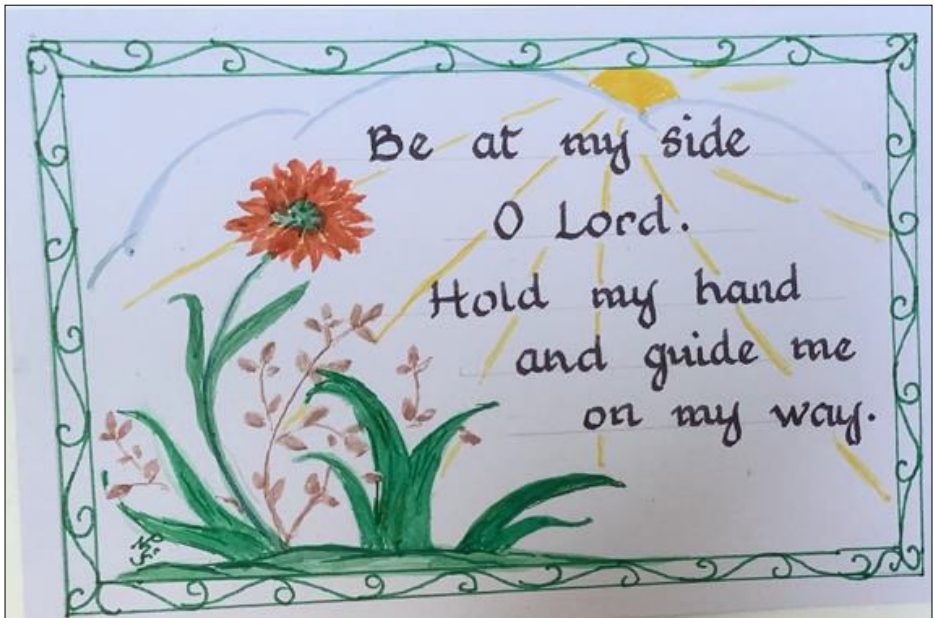 Be at my side
O Lord.
Hold my hand
and guide me
on my way.